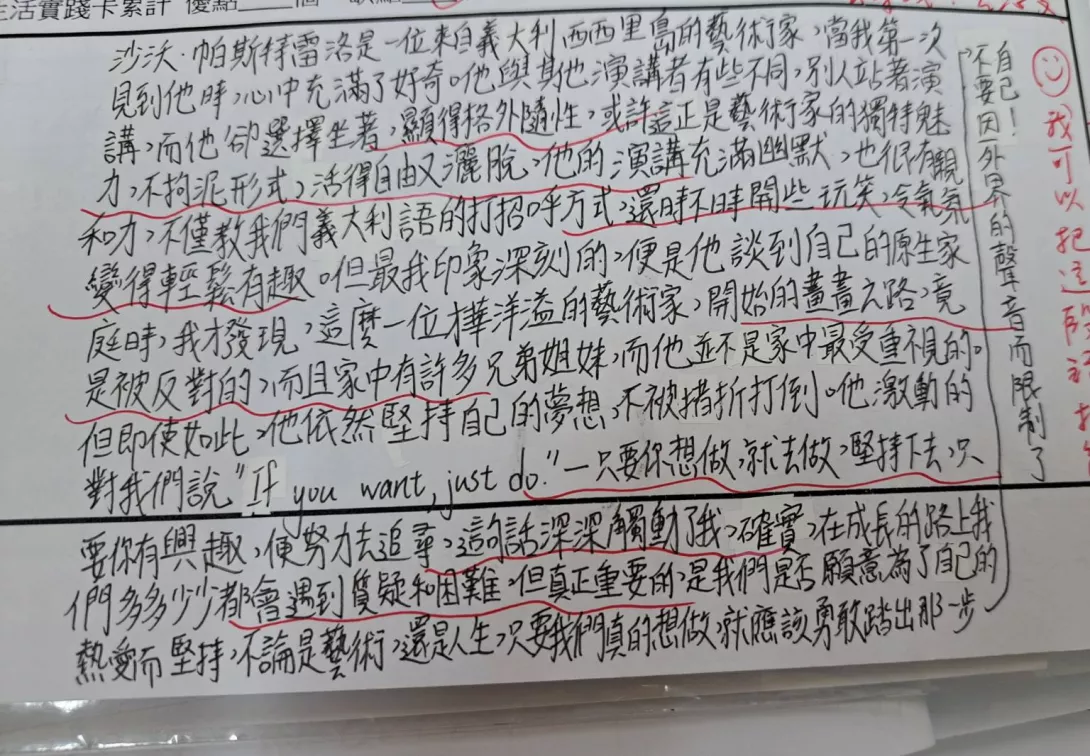 生活實踐卡累計 優點____個
沙沃·帕斯特雷洛是一位來自義大利西西里島的藝術家,當我第一次
見到他時,心中充滿了好奇。他與其他演講者有些不同,別人站著演
講,而他卻選擇坐著,顯得格外隨性,或許這正是藝術家的獨特魅
力,不拘泥形式,活得自由又灑脫,他的演講充滿幽默,也很有親
和力,不僅教我們義大利語的打招呼方式,還時不時開些玩笑,令氣氛
變得輕鬆有趣。但最我印象深刻的,便是他談到自己的原生家
庭時,我才發現,這麼一位才華洋溢的藝術家,開始的畫畫之路,竟
是被反對的,而且家中有許多兄弟姐妹,而他並不是家中最受重視的。
但即使如此,他依然堅持自己的夢想,不被挫折打倒。他激動的
對我們說"If you want, just do."一只要你想做,就去做,堅持下去,只
要你有興趣,便努力去追尋,這句話深深觸動了我,確實,在成長的路上我
們多多少少都會遇到質疑和困難,但真正重要的,是我們是否願意為了自己的
熱愛而堅持,不論是藝術,還是人生,只要我們真的想做,就應該勇敢踏出那一步
不要因外界的聲音而限制了
自己!
我可以把這段話